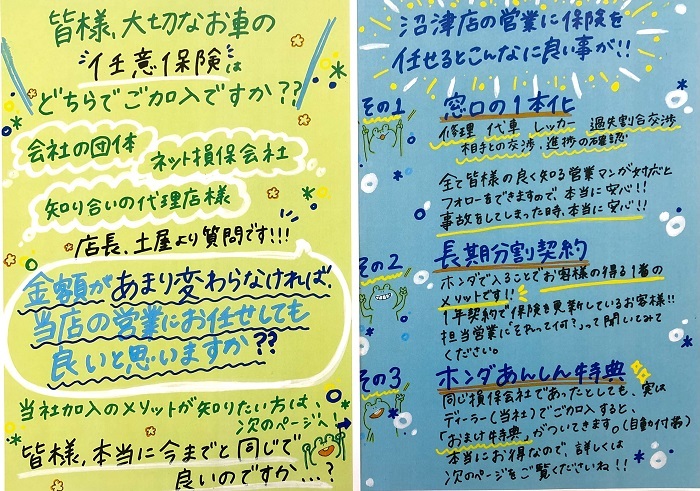 皆様、大切なお車の
任意保険は
どちらでご加入ですか??
会社の団体
ネット損保会社
知り合いの代理店様
店長、土屋より質問です!!!
金額があまり変わらなければ、
当店の営業にお任せしても
良いと思いますか??
当社加入のメリットが知りたい方は、
次のページへ!
皆様、本当に今までと同じで
良いのですか...?
沼津店の営業に保険を
任せるとこんなに良い事が!!
その1 窓口の1本化
修理 代車 レッカー 過失割合交渉
相手との交渉、進捗の確認
全て皆様の良く知る営業マンが対応と
フォローをできますので、本当に安心!!
事故をしてしまった時、本当に安心!!
その2 長期分割契約
ホンダで入ることでお客様の得る1番の
メリットです!!
1年契約で保険を更新しているお客様!!
担当営業に"それって何?"って聞いてみて
ください。
その3 ホンダあんしん特典
同じ損保会社であったとしても、実は
ディーラー(当社)でご加入すると、
「おまけ特典」がついてきます♪(自動付帯)
本当にお得なので、詳しくは
次のページをご覧くださいね!!